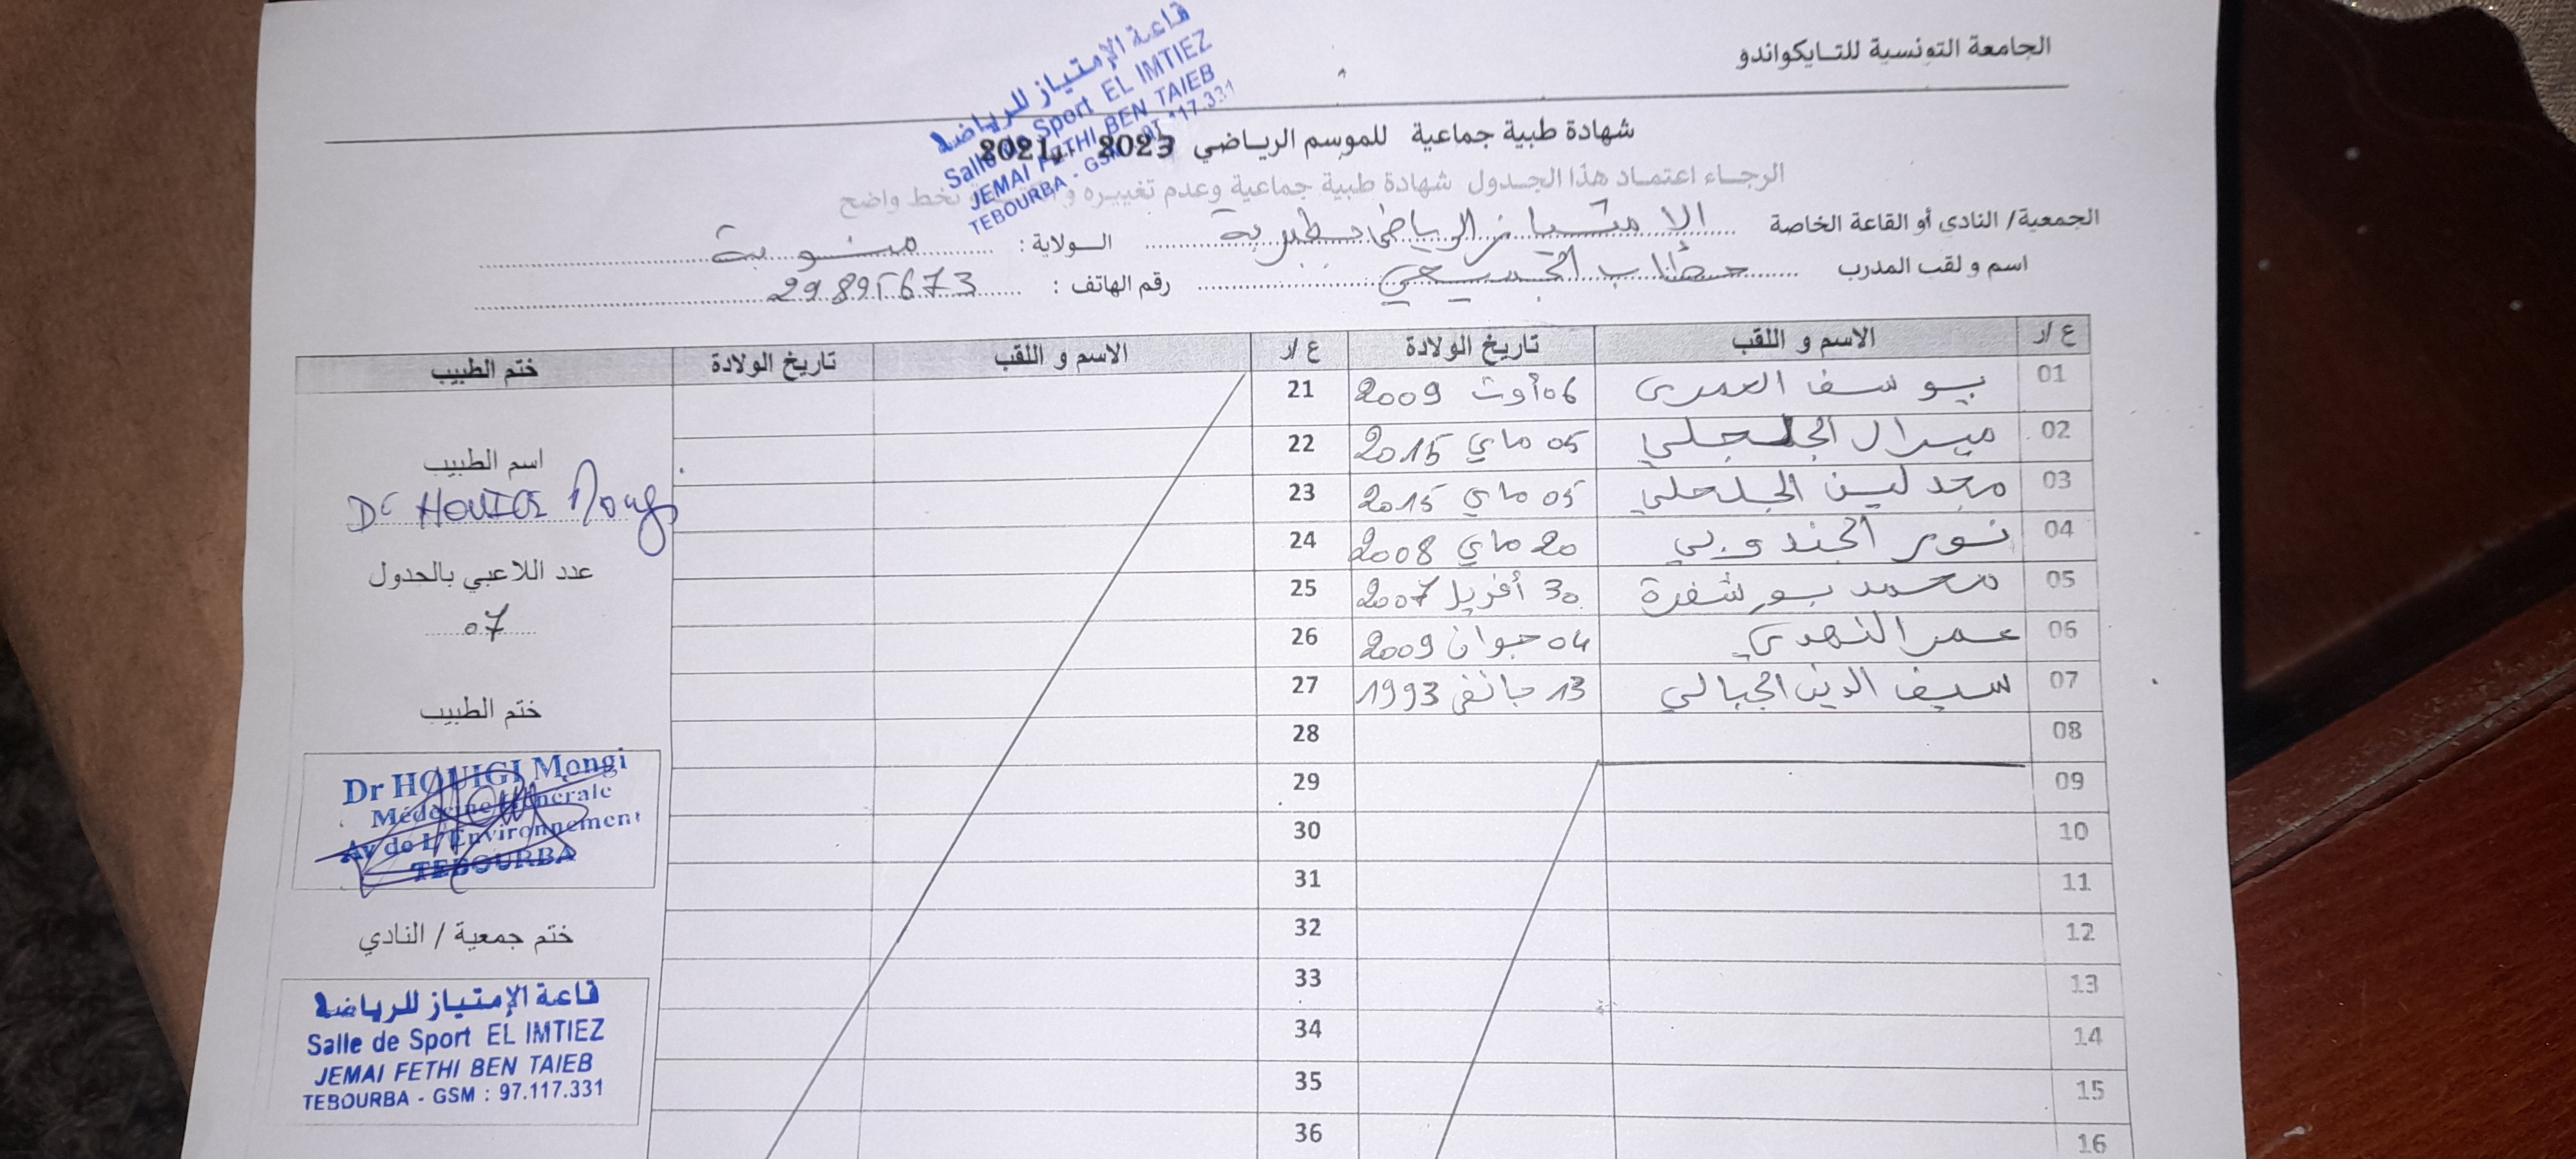 الجامعة التونسية للتـايكواندو
قاعة الإمتياز للرياضة
Salle de Sport EL IMTIEZ
JEMAI FETHI BEN TAIEB
TEBOURBA - GSM : 97.117.331
شهادة طبية جماعية للموسم الرياضي 2023 2021
الرجاء اعتماد هذا الجدول شهادة طبية جماعية وعدم تغييره و بخط واضح
الجمعية/ النادي أو القاعة الخاصة الامتياز الرياضي بطبربة الـولاية : منوبة
اسم و لقب المدرب خطاب رقم الهاتف : 29895673
ع /ر الاسم و اللقب تاريخ الولادة ع /ر الاسم و اللقب تاريخ الولادة ختم الطبيب
01 يوسف العمري 06 أوت 2009 21
02 ميرال الجلجلي 05 ماي 2015 22
03 مجدلين الجلجلي 05 ماي 2015 23
04 نور الجندوبي 20 ماي 2008 24
05 محمد بوشفرة 30 أفريل 2007 25
06 عمر النهدي 04 جوان 2009 26
07 سيف الدين الجبالي 13 جانفي 1993 27
08 28
09 29
10 30
11 31
12 32
13 33
14 34
15 35
16 36
اسم الطبيب
Dr HOUIGI Mongi
عدد اللاعبي بالجدول
07
ختم الطبيب
Dr HOUIGI Mongi
Médecine Générale
Av de L'Environnement
TEBOURBA
ختم جمعية / النادي
قاعة الإمتياز للرياضة
Salle de Sport EL IMTIEZ
JEMAI FETHI BEN TAIEB
TEBOURBA - GSM : 97.117.331